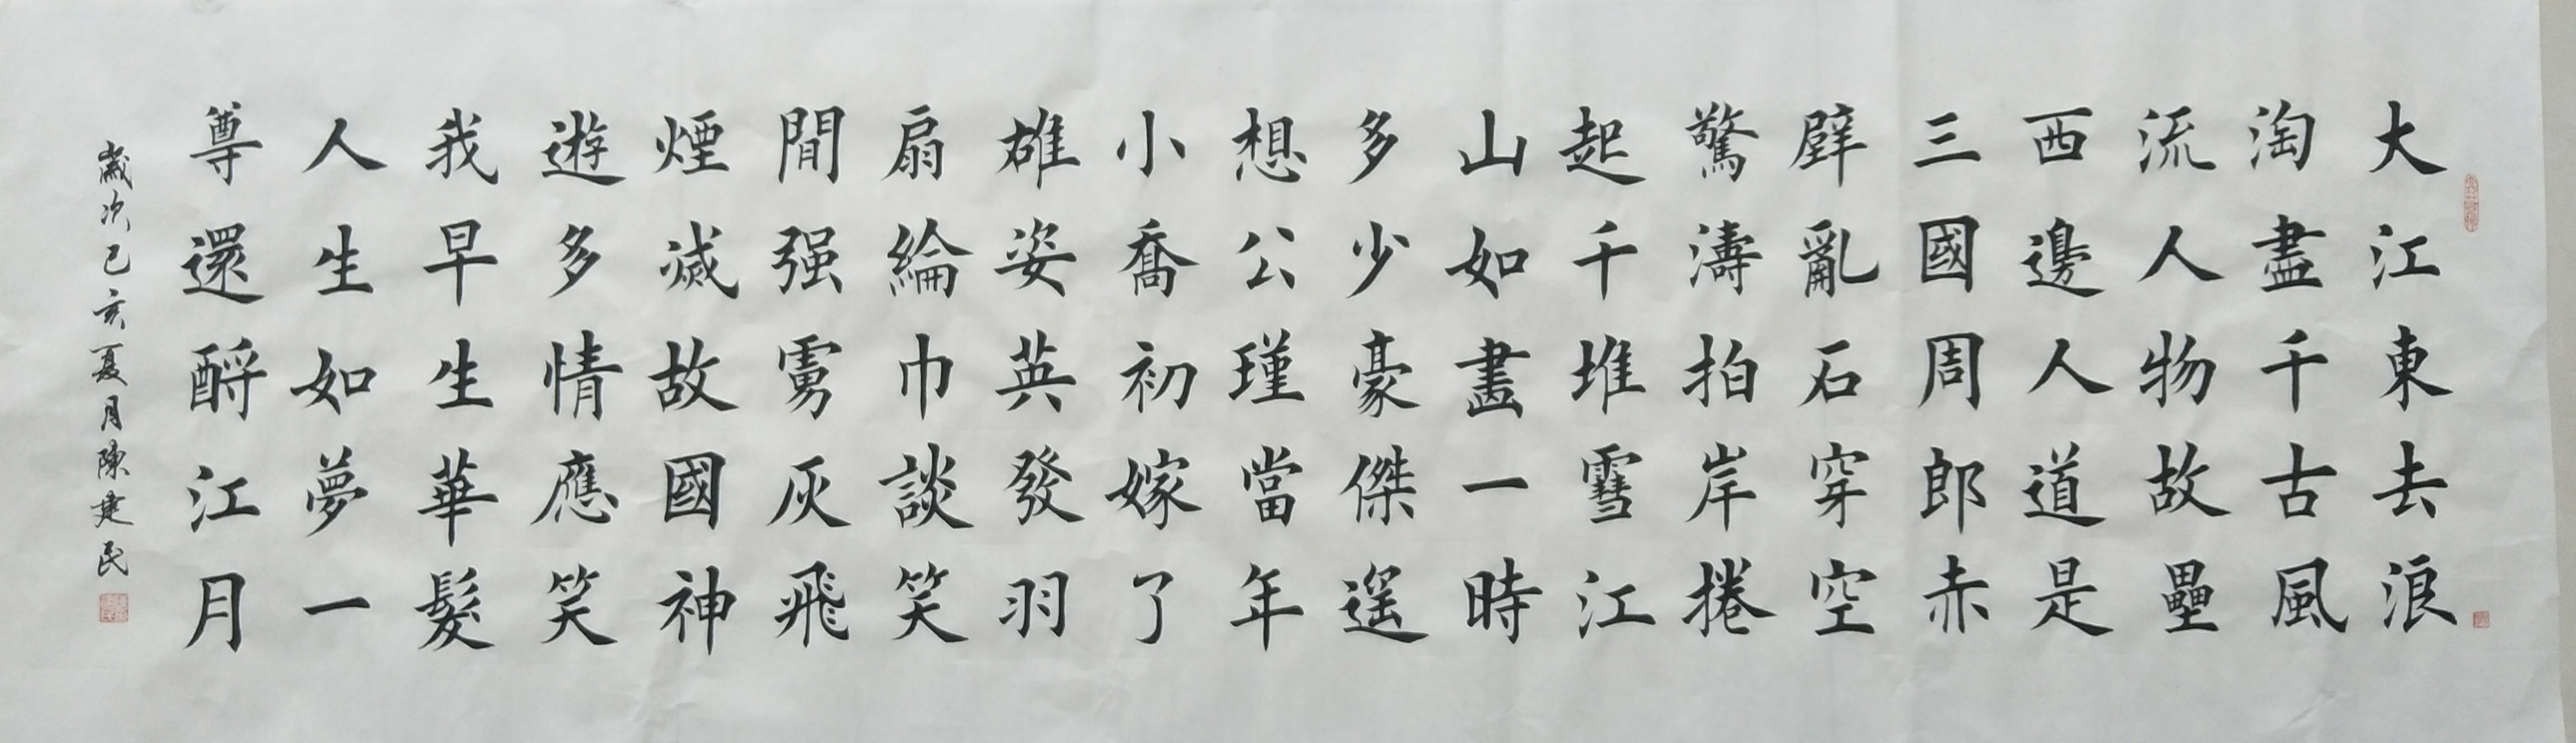 大江東去浪
淘盡千古風
流人物故壘
西邊人道是
三國周郎赤
壁亂石穿空
驚濤拍岸捲
起千堆雪江
山如畫一時
多少豪傑遥
想公瑾當年
小喬初嫁了
雄姿英發羽
扇綸巾談笑
間强虜灰飛
煙滅故國神
遊多情應笑
我早生華髮
人生如夢一
尊還酹江月
歲次己亥夏月陳建民